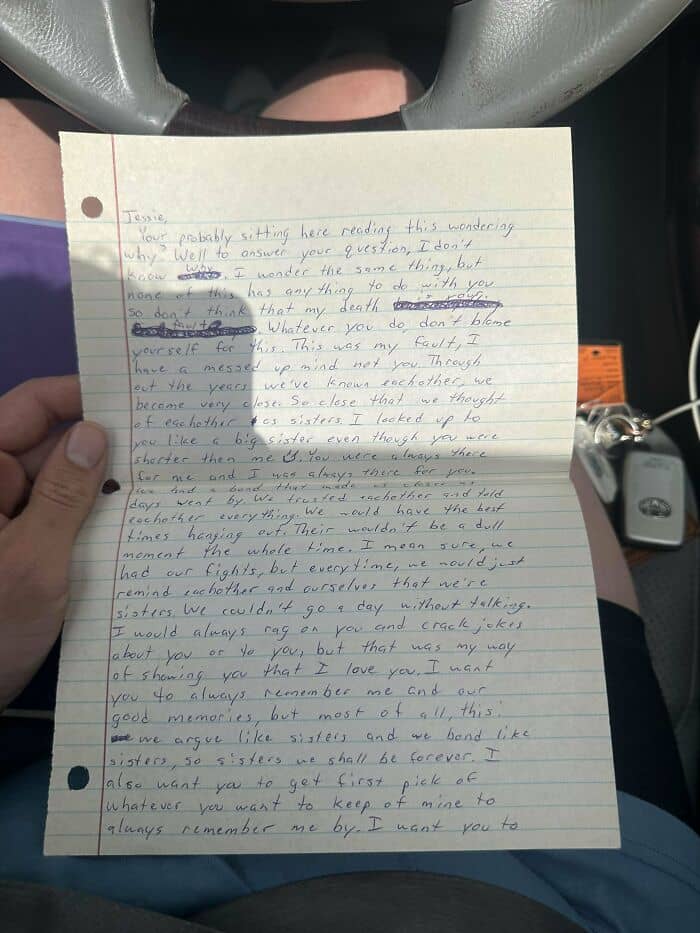 Jessie,
Your probably sitting here reading this wondering
why? Well to answer your question, I don't
know why. I wonder the same thing, but
none of this has any thing to do with you
So don't think that my death is your
fault. Whatever you do, don't blame
yourself for this. This was my fault, I
have a messed up mind not you. Through
out the years we've known eachother, we
become very close. So close that we thought
of eachother as sisters. I looked up to
you like a big sister even though you were
shorter then me. You were always there
for me and I was always there for you.
we had a bond that made us closer as
days went by. We trusted eachother and told
eachother everything. We would have the best
times hanging out. Their wouldn't be a dull
moment the whole time. I mean sure, we
had our fights, but everytime, we would just
remind eachother and ourselves that we're
sisters. We couldn't go a day without talking.
I would always rag on you and crack jokes
about you or to you, but that was my way
of showing you that I love you. I want
you to always remember me and our
good memories, but most of all, this:
we argue like sisters and we bond like
sisters, so sisters we shall be forever. I
also want you to get first pick of
whatever you want to keep of mine to
always remember me by. I want you to